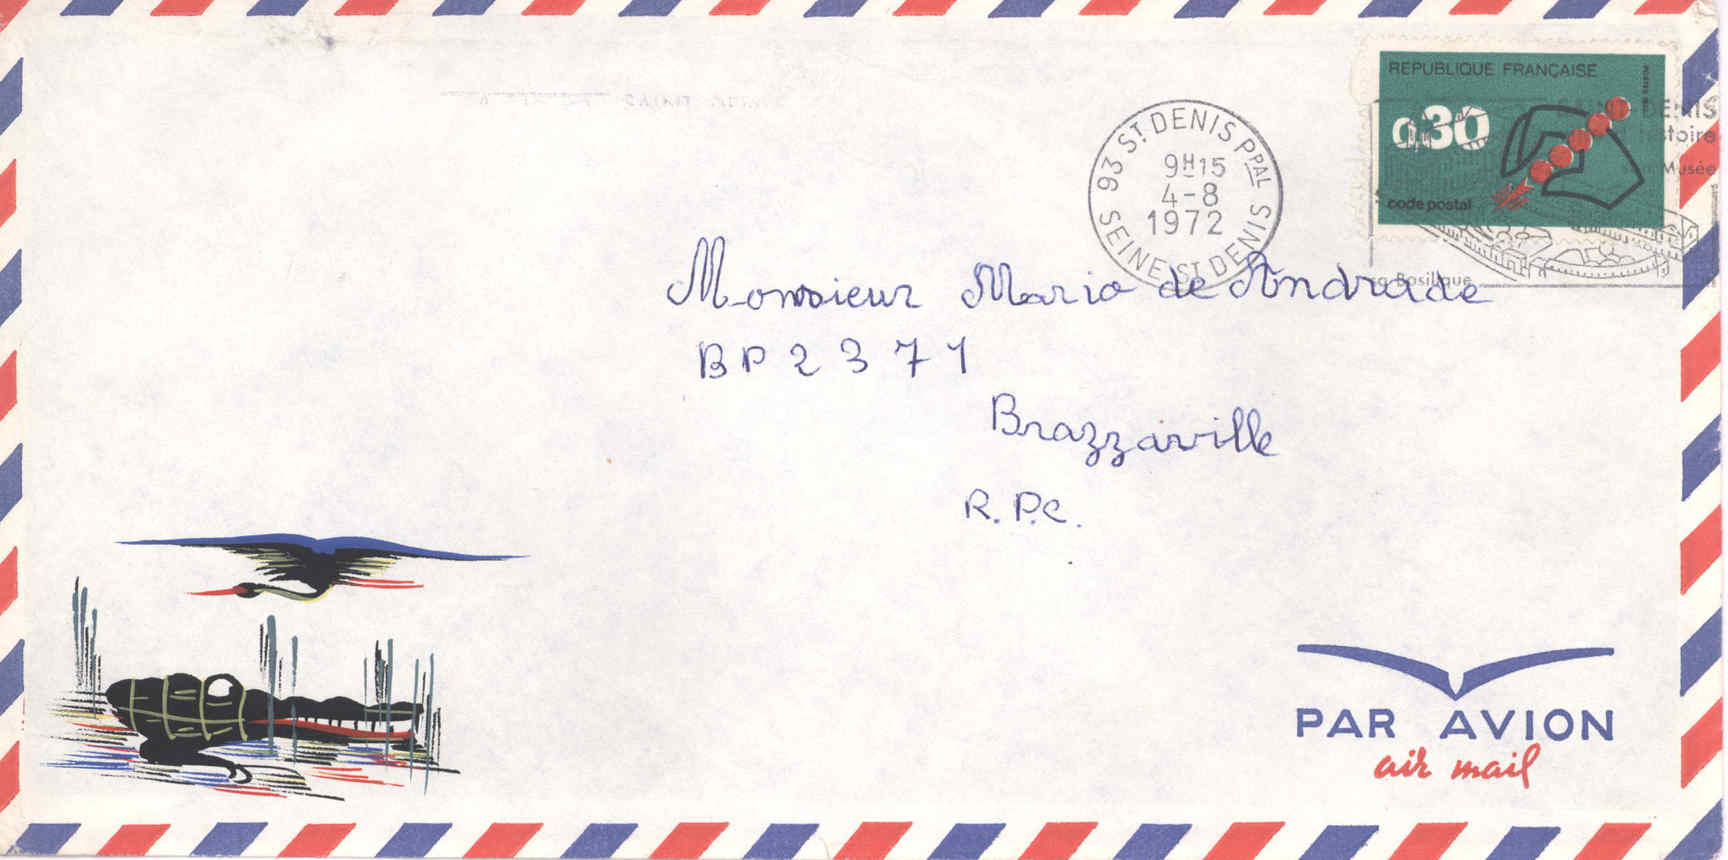 REPUBLIQUE FRANÇAISE
0,30
code postal
93 ST DENIS PPAL
9H15
4-8
1972
SEINE ST DENIS
DENIS
Musée
sa Basilique
Monsieur Mario de Andrade
BP 2371
Brazzaville
R.P.C.
PAR AVION
air mail